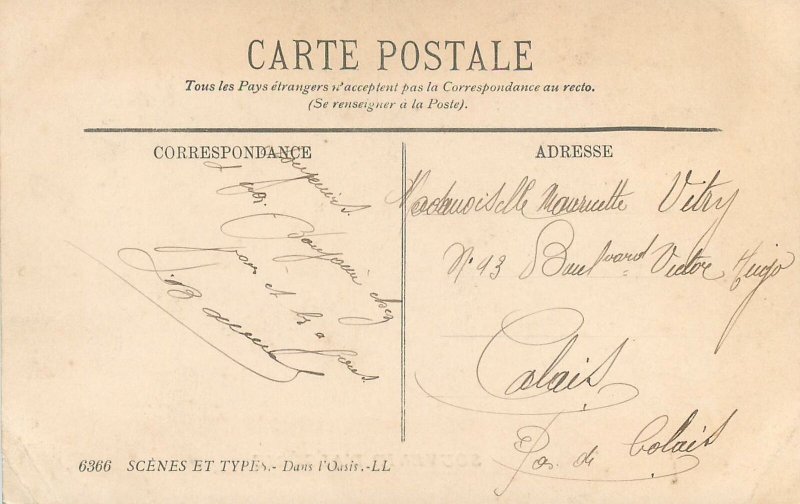 CARTE POSTALE
Tous les Pays étrangers n'acceptent pas la Correspondance au recto.
(Se renseigner à la Poste).
CORRESPONDANCE
ADRESSE
Souvenirs
Bonjour chez
Mademoiselle Mauricette Vétry
N° 93 Boulevard Victor Hugo
Calais
Pas de Calais
6366 SCÈNES ET TYPES.- Dans l'Oasis.-LL